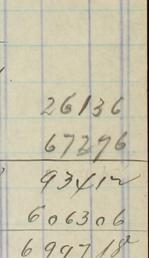 26136
67276
93412
606306
699718